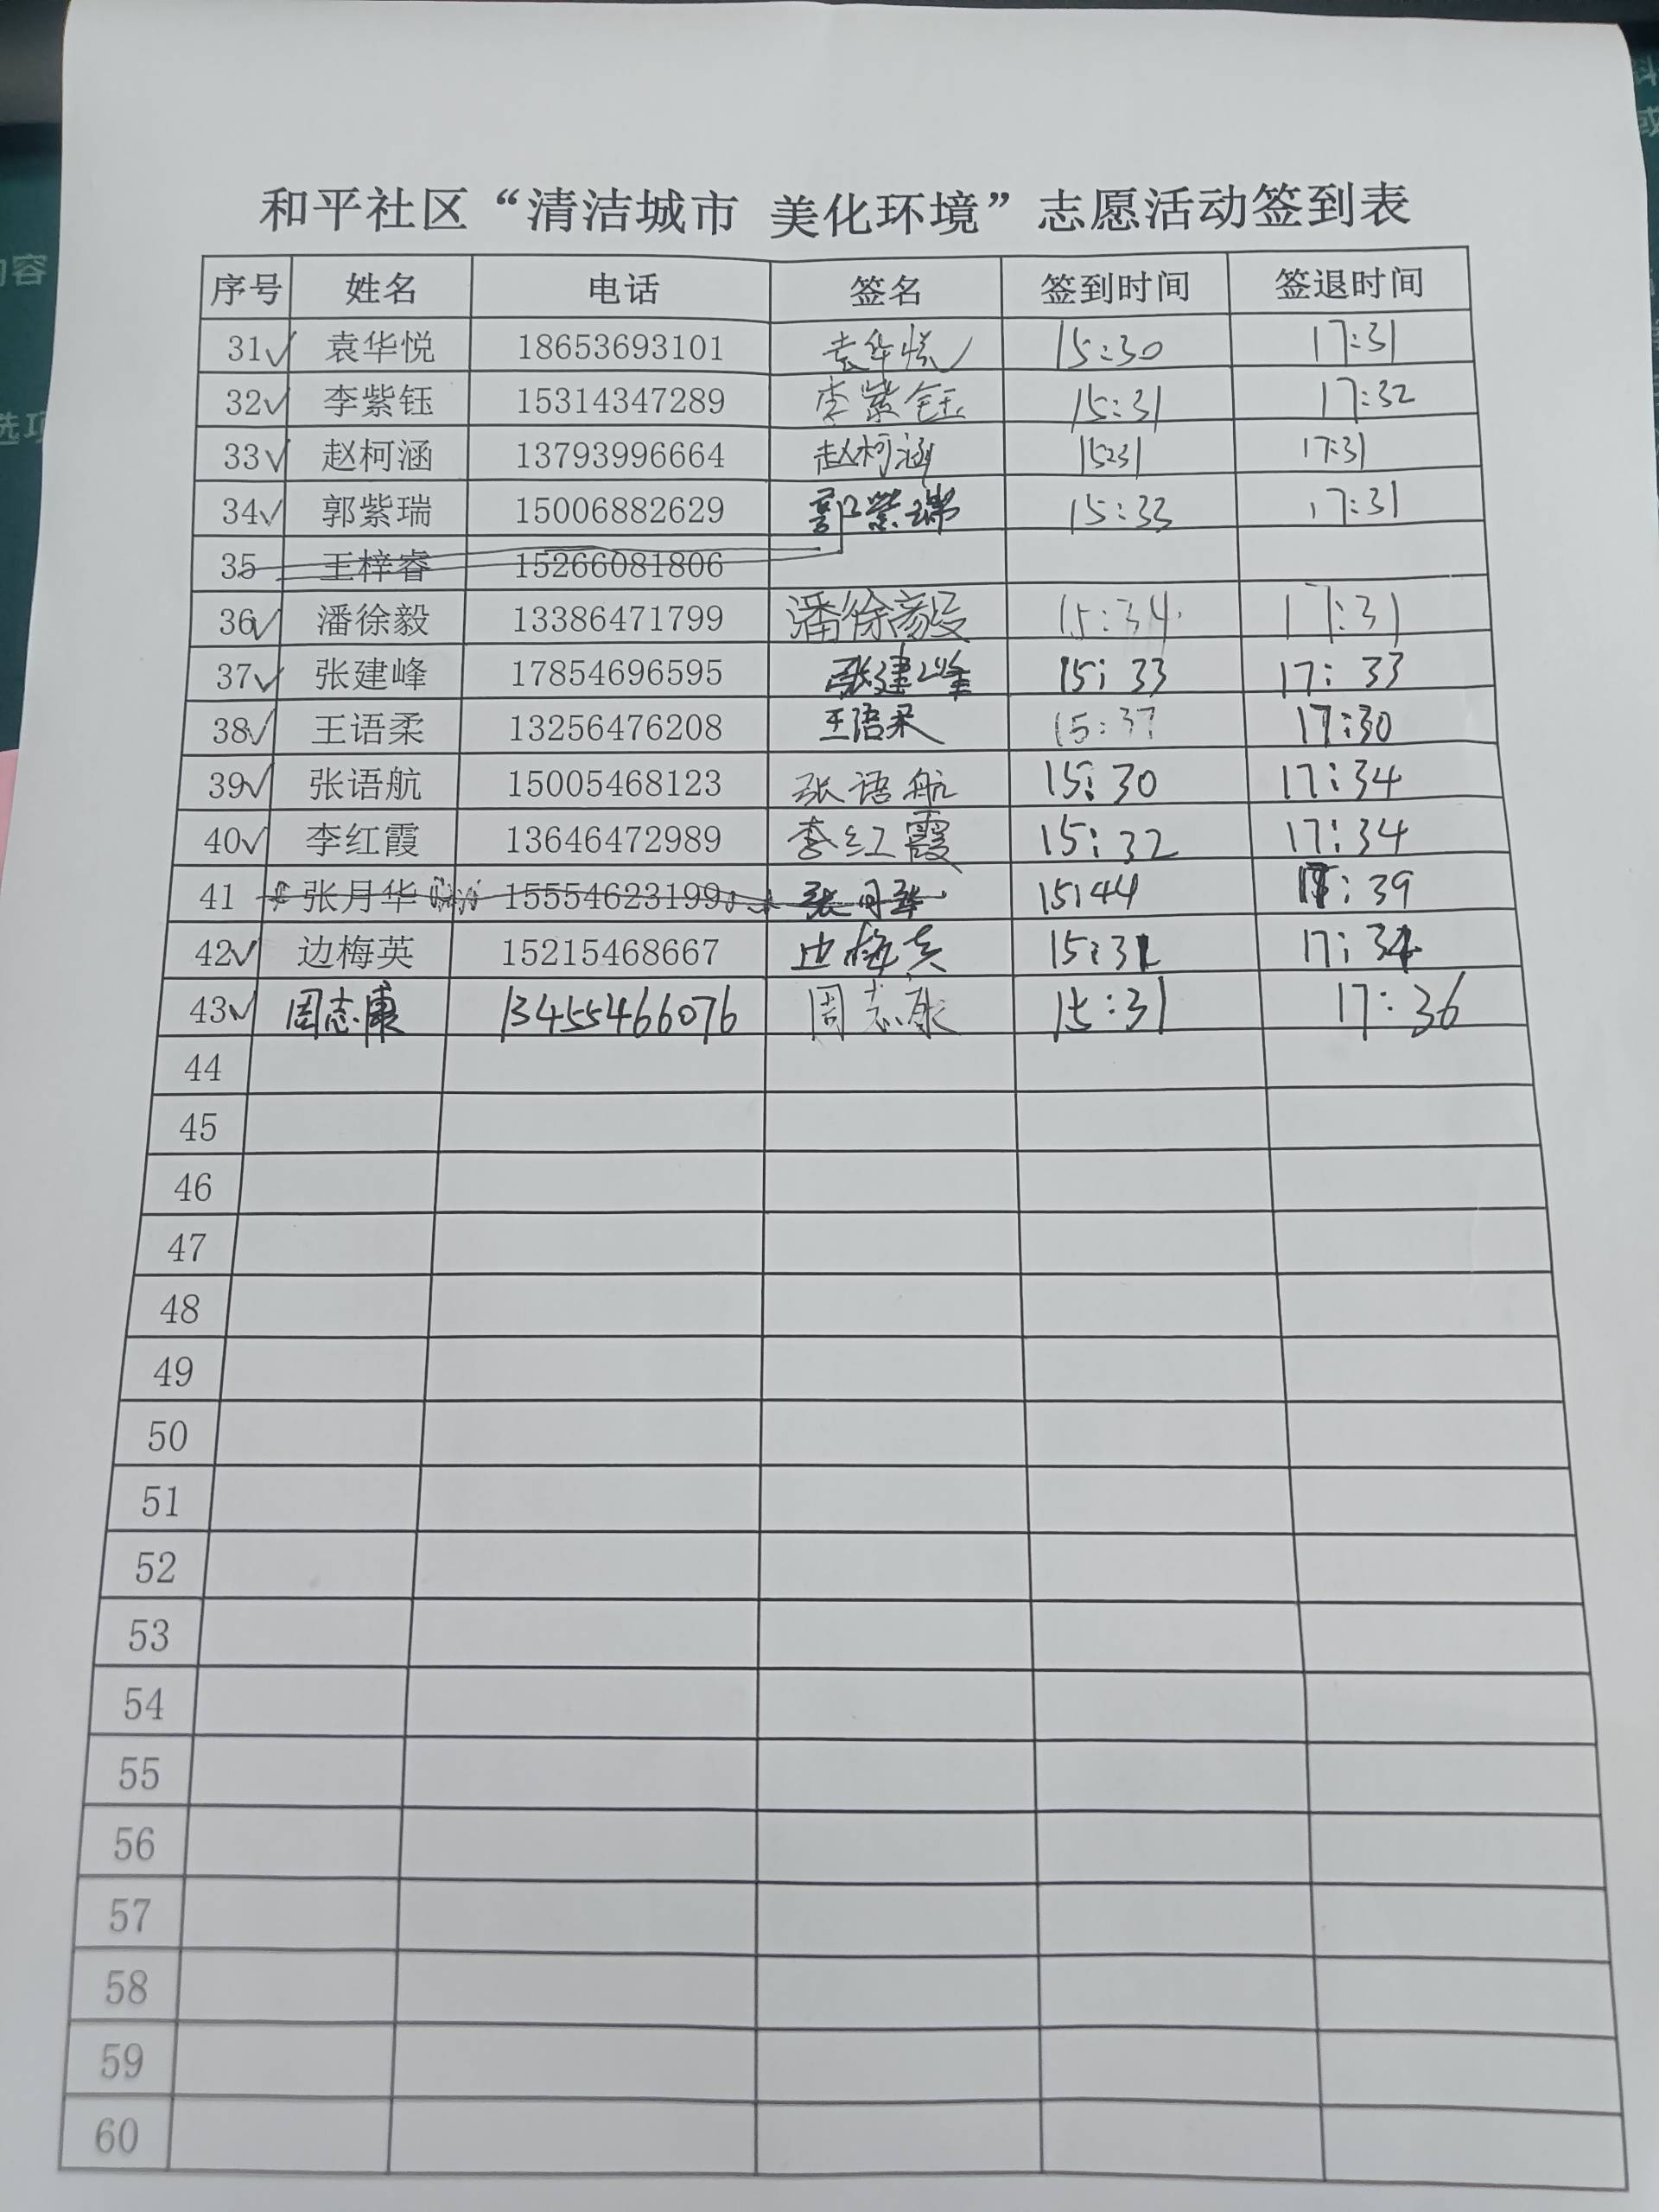 和平社区“清洁城市 美化环境”志愿活动签到表
序号 姓名 电话 签名 签到时间 签退时间
31√ 袁华悦 18653693101 袁华悦 15:30 17:31
32√ 李紫钰 15314347289 李紫钰 15:31 17:32
33√ 赵柯涵 13793996664 赵柯涵 15:31 17:31
34√ 郭紫瑞 15006882629 郭紫瑞 15:33 17:31
35 王梓睿 15266081806
36√ 潘徐毅 13386471799 潘徐毅 15:34 17:31
37√ 张建峰 17854696595 张建峰 15:33 17:33
38√ 王语柔 13256476208 王语柔 15:37 17:30
39√ 张语航 15005468123 张语航 15:30 17:34
40√ 李红霞 13646472989 李红霞 15:32 17:34
41 张月华 15554623199 张月华 15:44 :39
42√ 边梅英 15215468667 边梅英 15:31 17:34
43√ 周志康 13455466076 周志康 15:31 17:36
44
45
46
47
48
49
50
51
52
53
54
55
56
57
58
59
60
内容
选项
或